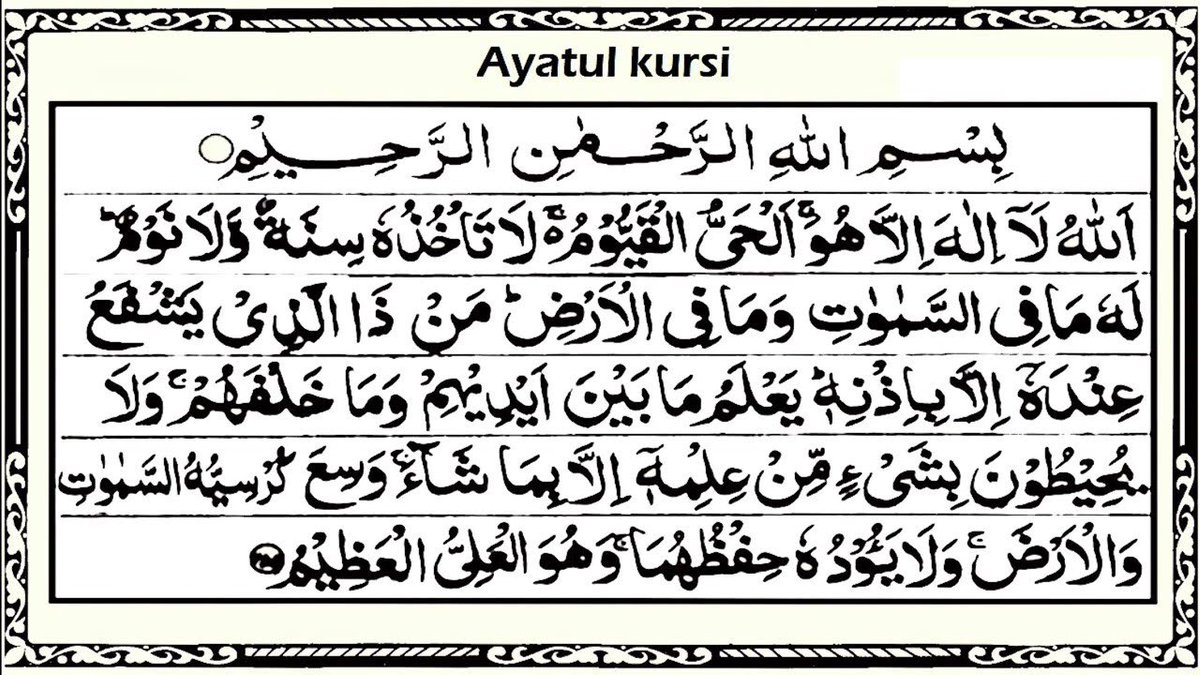 Ayatul kursi
بِسْمِ اللّٰهِ الرَّحْمٰنِ الرَّحِيْمِ
اَللّٰهُ لَآ اِلٰهَ اِلَّا هُوَۚ اَلْحَیُّ الْقَيُّوْمُ ەۚ لَا تَاْخُذُهٗ سِنَةٌ وَّلَا نَوْمٌؕ
لَهٗ مَا فِی السَّمٰوٰتِ وَمَا فِی الْاَرْضِؕ مَنْ ذَا الَّذِیْ يَشْفَعُ
عِنْدَهٗۤ اِلَّا بِاِذْنِهٖؕ يَعْلَمُ مَا بَيْنَ اَيْدِيْهِمْ وَمَا خَلْفَهُمْۚ وَلَا
يُحِيْطُوْنَ بِشَیْءٍ مِّنْ عِلْمِهٖۤ اِلَّا بِمَا شَآءَۚ وَسِعَ كُرْسِيُّهُ السَّمٰوٰتِ
وَالْاَرْضَۚ وَلَا يَـُٔوْدُهٗ حِفْظُهُمَاۚ وَهُوَ الْعَلِیُّ الْعَظِيْمُ